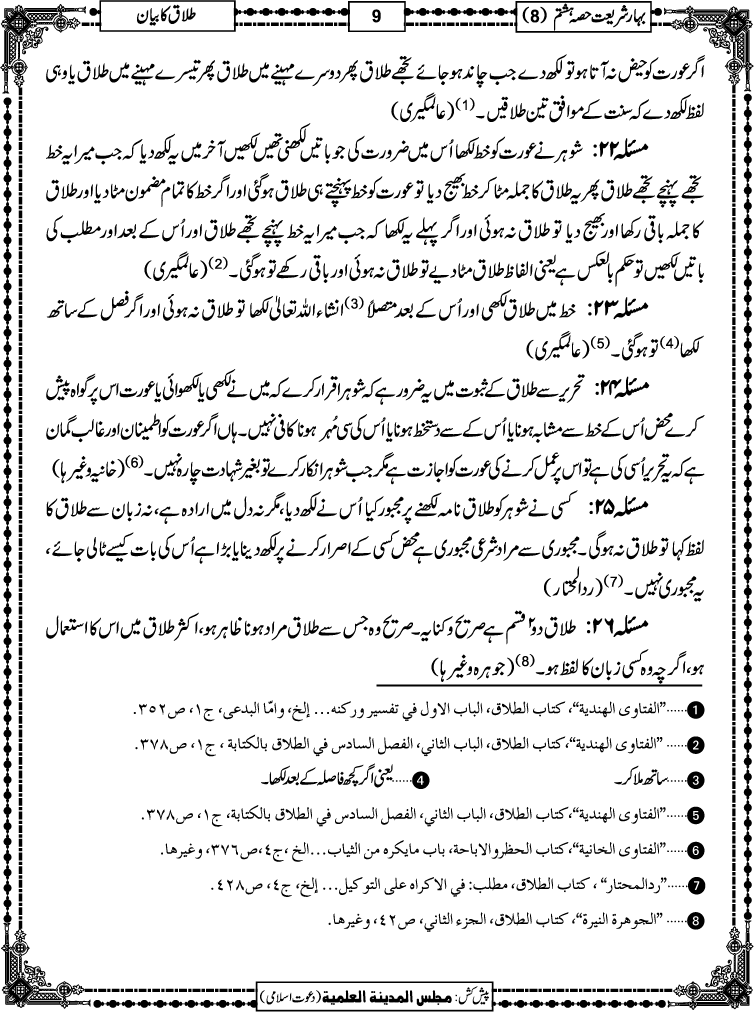 بہار شریعت حصہ ہشتم (8)
9
طلاق کا بیان
اگر عورت کو حیض نہ آتا ہو تو لکھ دے جب چاند ہو جائے تجھے طلاق پھر دوسرے مہینے میں طلاق پھر تیسرے مہینے میں طلاق یا وہی
لفظ لکھ دے کہ سنت کے موافق تین طلاقیں۔(1) (عالمگیری)
مسئلہ ۲۲: شوہر نے عورت کو خط لکھا اُس میں ضرورت کی جو باتیں لکھنی تھیں لکھیں آخر میں یہ لکھ دیا کہ جب میرا یہ خط
تجھے پہنچے تجھے طلاق پھر یہ طلاق کا جملہ مٹا کر خط بھیج دیا تو عورت کو خط پہنچتے ہی طلاق ہوگئی اور اگر خط کا تمام مضمون مٹا دیا اور طلاق
کا جملہ باقی رکھا اور بھیج دیا تو طلاق نہ ہوئی اور اگر پہلے یہ لکھا کہ جب میرا یہ خط پہنچے تجھے طلاق اور اُس کے بعد اور مطلب کی
باتیں لکھیں تو حکم بالعکس ہے یعنی الفاظ طلاق مٹا دیے تو طلاق نہ ہوئی اور باقی رکھے تو ہوگئی۔(2) (عالمگیری)
مسئلہ ۲۳: خط میں طلاق لکھی اور اُس کے بعد متصلاً (3) انشاء اللہ تعالیٰ لکھا تو طلاق نہ ہوئی اور اگر فصل کے ساتھ
لکھا(4) تو ہوگئی۔(5) (عالمگیری)
مسئلہ ۲۴: تحریر سے طلاق کے ثبوت میں یہ ضرور ہے کہ شوہر اقرار کرے کہ میں نے لکھی یا لکھوائی یا عورت اس پر گواہ پیش
کرے محض اُس کے خط سے مشابہ ہونا یا اُس کے سے دستخط ہونا یا اُس کی سی مُہر ہونا کافی نہیں۔ ہاں اگر عورت کو اطمینان اور غالب گمان
ہے کہ یہ تحریر اُسی کی ہے تو اس پر عمل کرنے کی عورت کو اجازت ہے مگر جب شوہر انکار کرے تو بغیر شہادت چارہ نہیں۔(6) (خانیہ وغیرہا)
مسئلہ ۲۵: کسی نے شوہر کو طلاق نامہ لکھنے پر مجبور کیا اُس نے لکھ دیا، مگر نہ دل میں ارادہ ہے، نہ زبان سے طلاق کا
لفظ کہا تو طلاق نہ ہوگی۔ مجبوری سے مراد شرعی مجبوری ہے محض کسی کے اصرار کرنے پر لکھ دینا یا بڑا ہے اُس کی بات کیسے ٹالی جائے،
یہ مجبوری نہیں۔(7) (ردالمحتار)
مسئلہ ۲۶: طلاق دو۲ قسم ہے صریح و کنایہ۔ صریح وہ جس سے طلاق مراد ہونا ظاہر ہو، اکثر طلاق میں اس کا استعمال
ہو، اگرچہ وہ کسی زبان کا لفظ ہو۔(8) (جوہرہ وغیرہا)
1 ......"الفتاوی الهندية"، کتاب الطلاق، الباب الاول في تفسير ورکنه... إلخ، وامّا البدعی، ج١، ص٣٥٢.
2 ...... "الفتاوی الهندية"،کتاب الطلاق، الباب الثاني، الفصل السادس في الطلاق بالکتابة ، ج١، ص٣٧٨.
3 ......ساتھ ملا کر۔ 4 ......یعنی اگر کچھ فاصلہ کے بعد لکھا۔
5 ......"الفتاوی الهندية"،کتاب الطلاق، الباب الثاني، الفصل السادس في الطلاق بالکتابة، ج١، ص٣٧٨.
6 ......"الفتاوی الخانية"،کتاب الحظر والاباحة، باب مايکره من الثياب...الخ ،ج٤،ص٣٧٦، وغيرها.
7 ......"ردالمحتار" ، کتاب الطلاق، مطلب: في الاکراه علی التوکيل... إلخ، ج٤، ص٤٢٨.
8 ...... "الجوهرة النيرة"، کتاب الطلاق، الجزء الثاني، ص٤٢، وغيرها.
پیش کش: مجلس المدینة العلمیة (دعوت اسلامی)